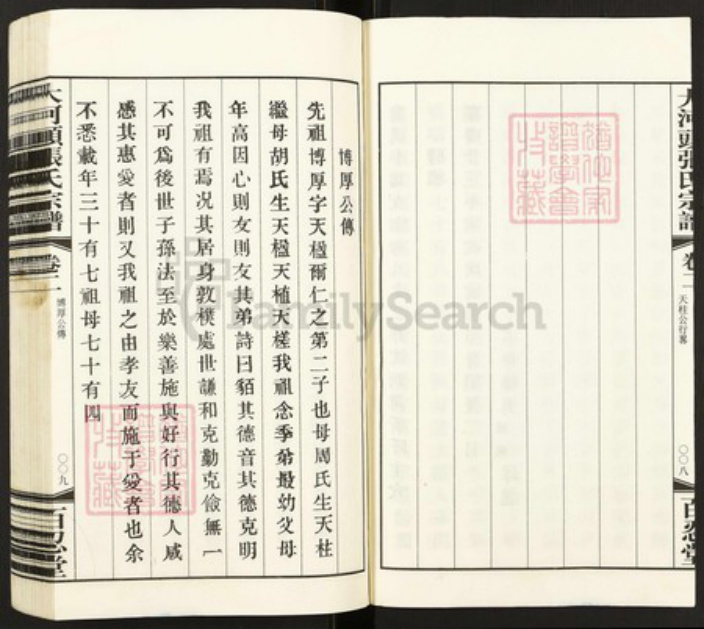 大河頭張氏宗譜
卷二
天柱公行畧
〇〇八
百忍堂
博厚公傳
先祖博厚字天楹爾仁之第二子也母周氏生天柱
繼母胡氏生天楹天植天槎我祖念季弟最幼父母
年高因心則友則友其弟詩曰貊其德音其德克明
我祖有焉况其居身敦樸處世謙和克勤克儉無一
不可為後世子孫法至於樂善施與好行其德人咸
感其惠愛者則又我祖之由孝友而施于愛者也余
不悉載年三十有七祖母七十有四
大河頭張氏宗譜
卷二
博厚公傳
〇〇九
百忍堂
FamilySearch